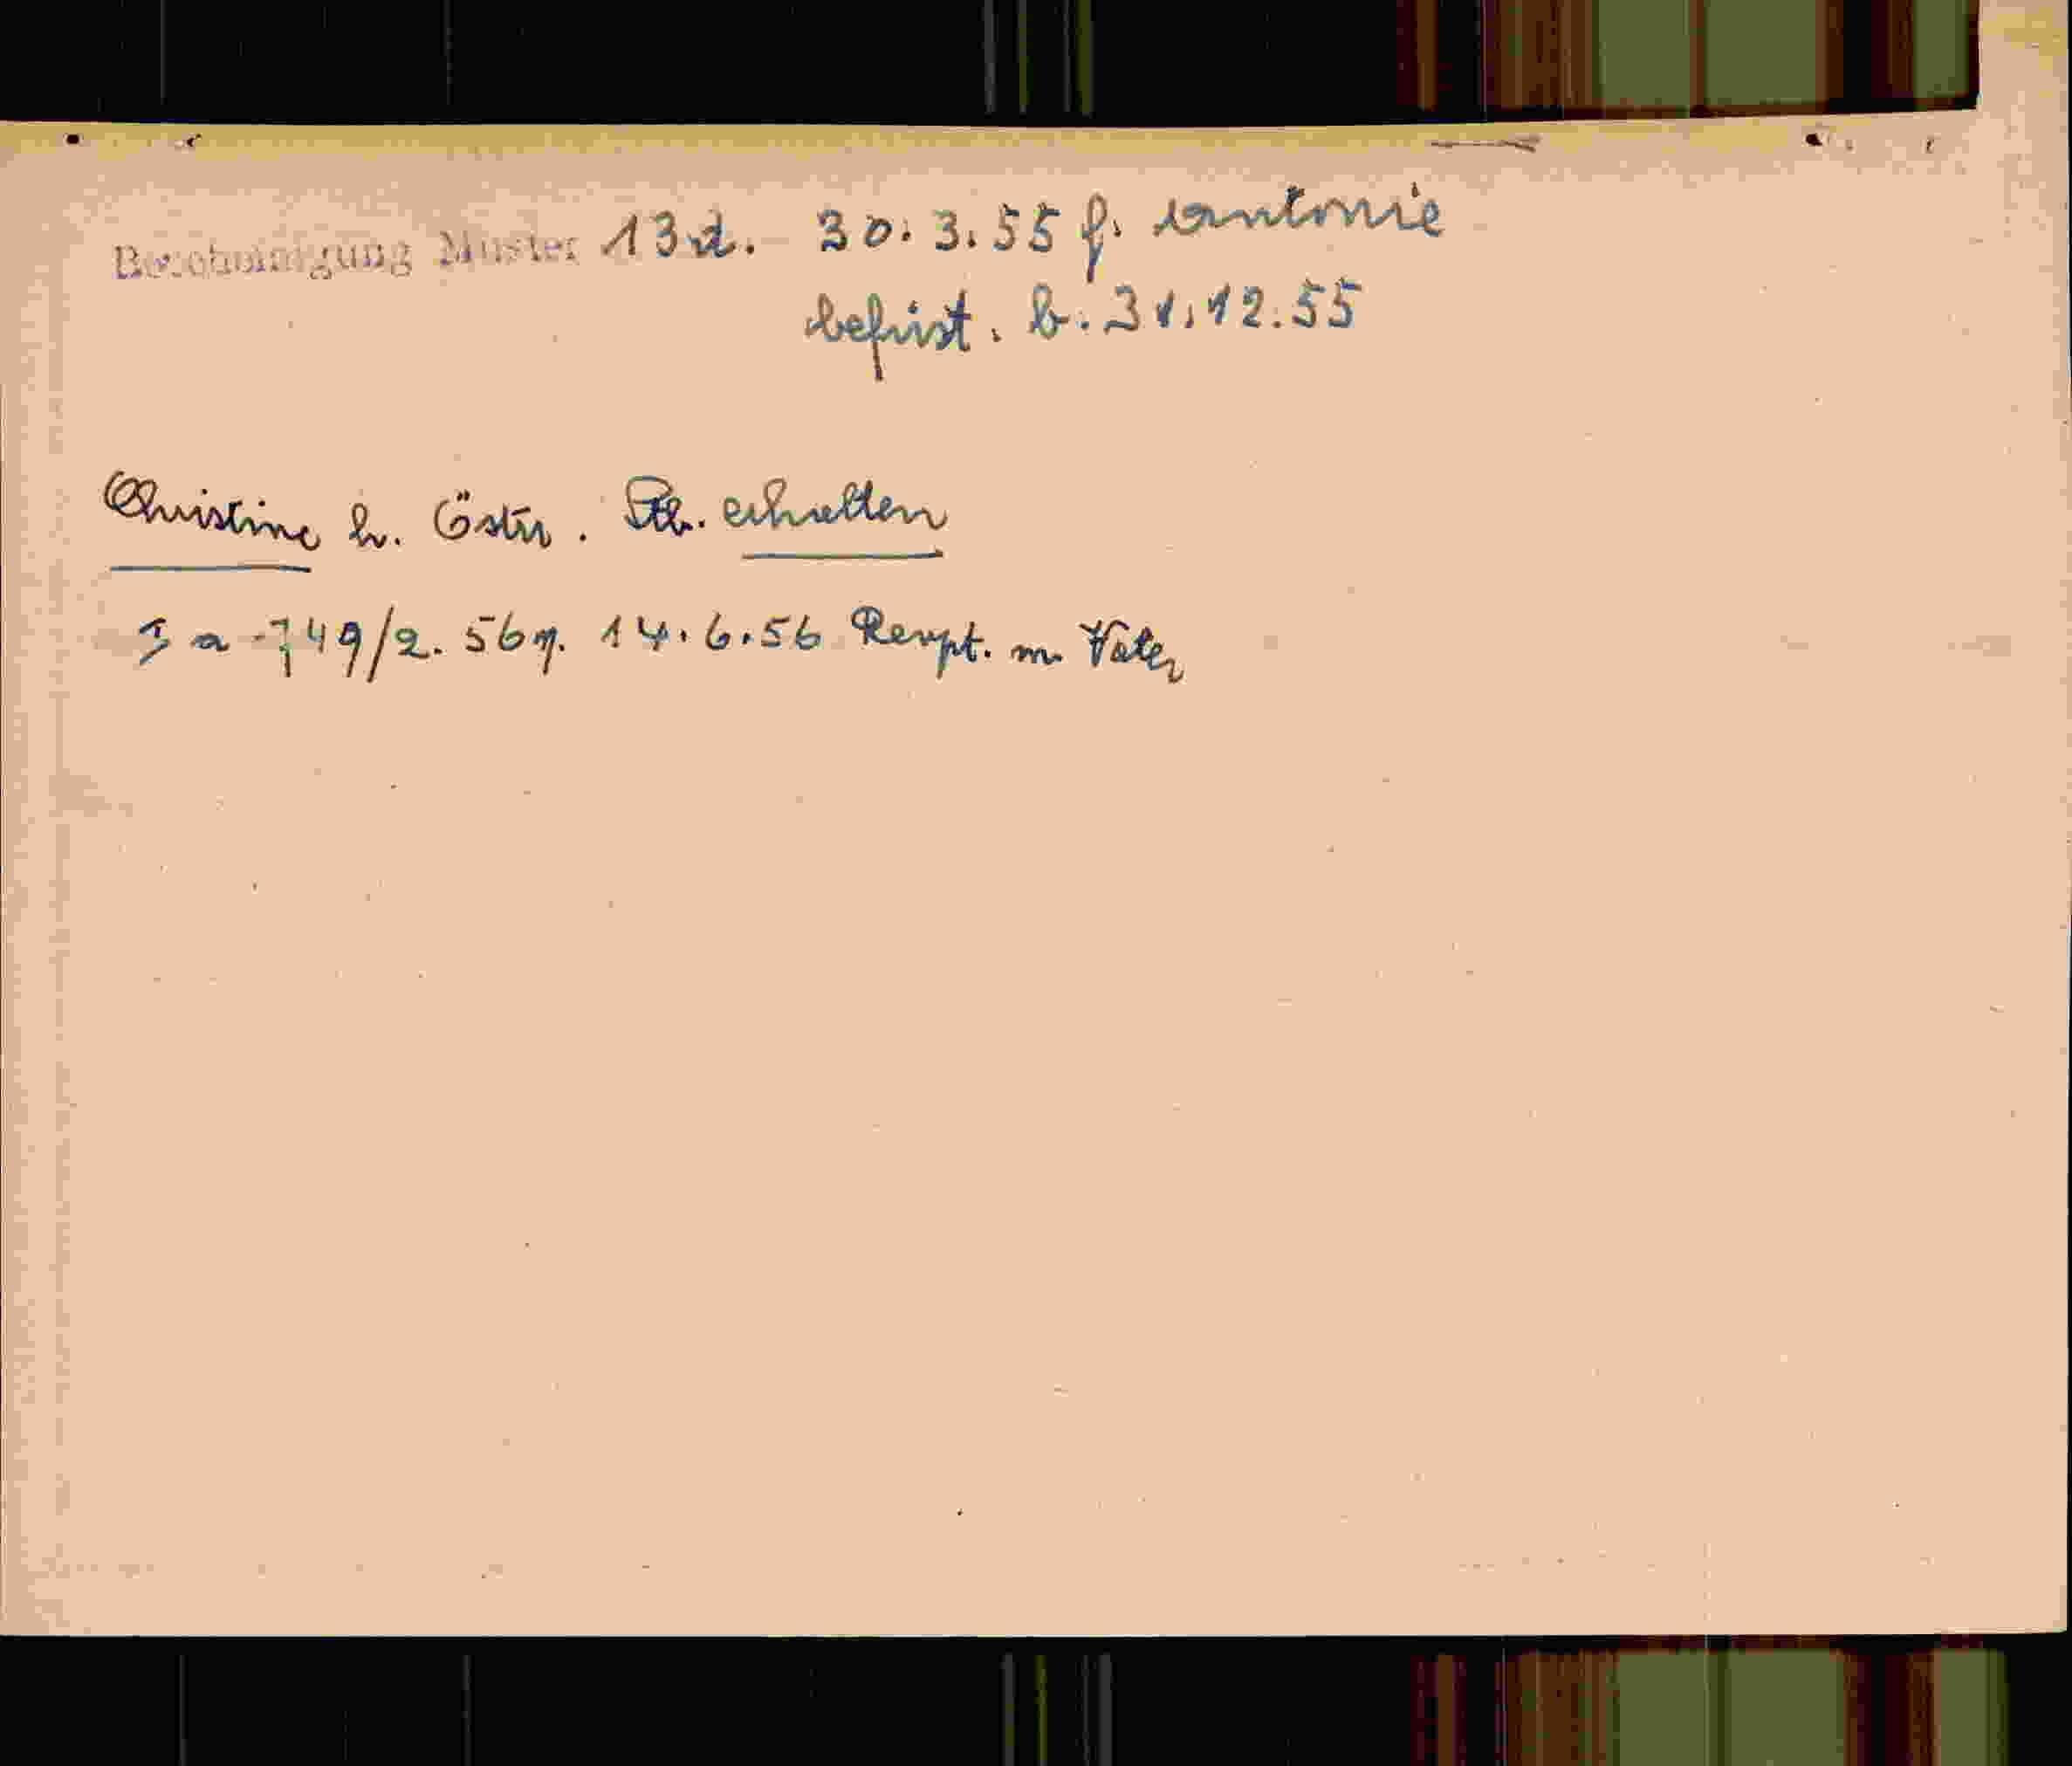 Bescheinigung Muster 13a. 30.3.55 f. Antonie
befrist. b. 31.12.55
Christine h. Östr. Stb. erhalten
I a -749/2.56 v. 14.6.56 Rerpt. m. Vater